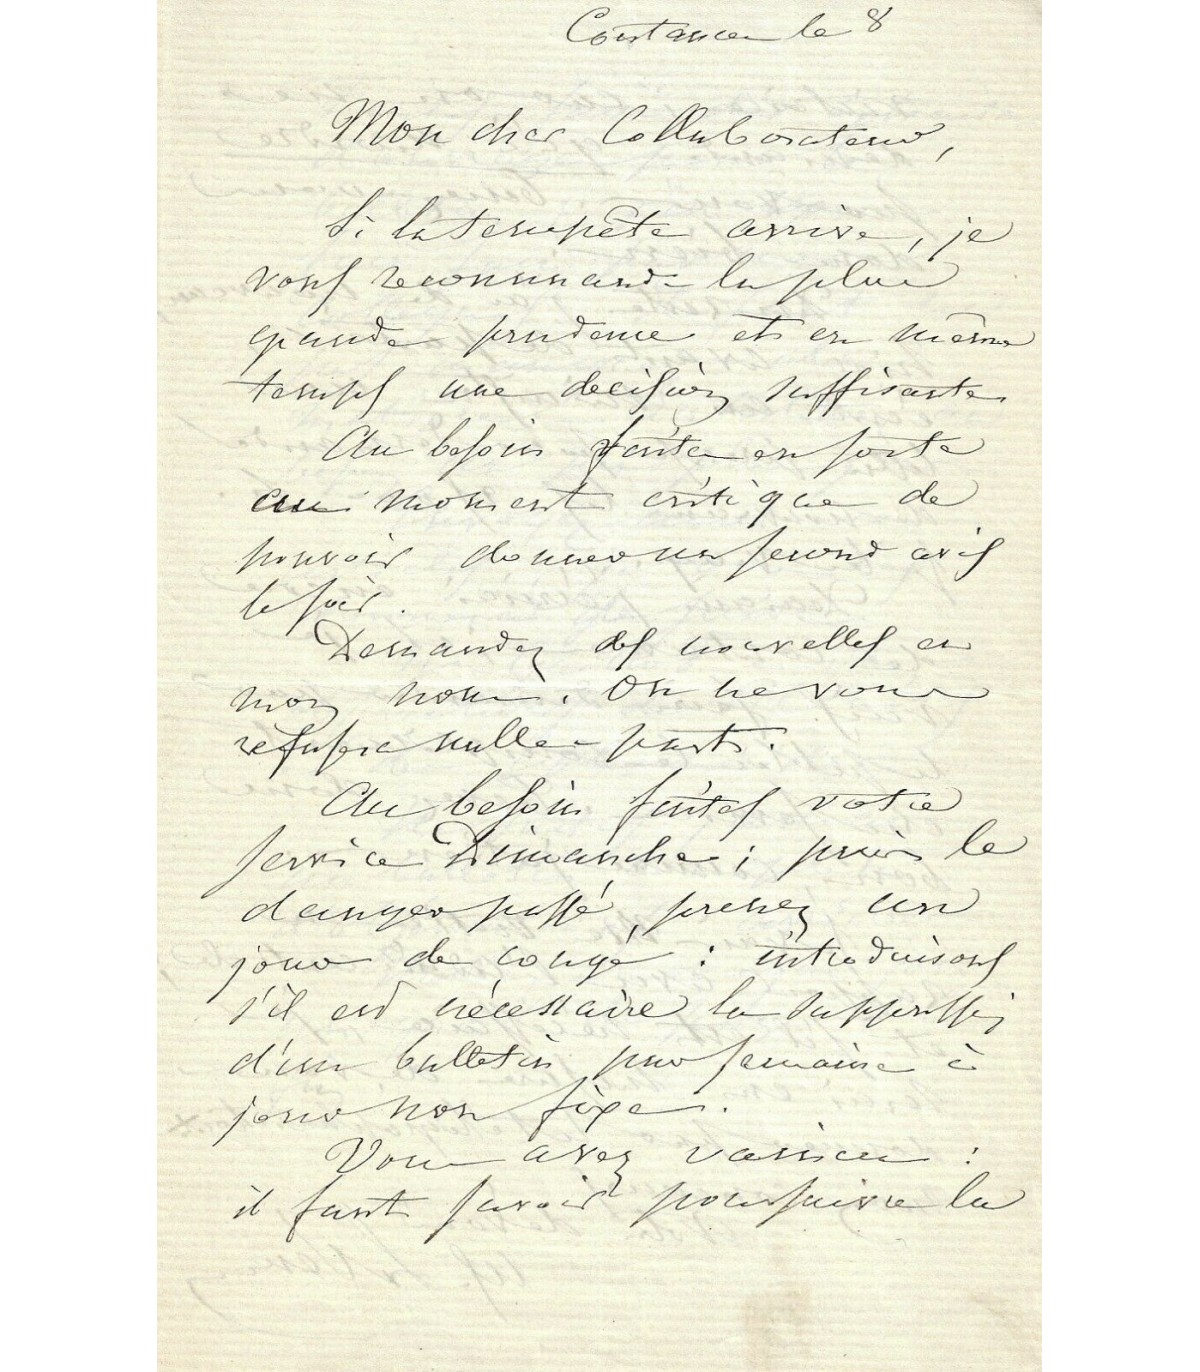 Constance le 8
Mon cher Collaborateur,
Si la tempête arrive, je
vous recommande la plus
grande prudence et en même
temps une decision suffisante.
Au besoin faites en sorte
au moment critique de
pouvoir donner un second avis
le soir.
Demandez des nouvelles en
mon nom. On ne vous
refusera nulle part.
Au besoin faites votre
service Dimanche ; puis le
danger passé, prenez un
jour de congé : introduisons
s'il est nécessaire la suppression
d'un bulletin par semaine à
jour non fixe.
Vous avez raison :
il faut savoir poursuivre la